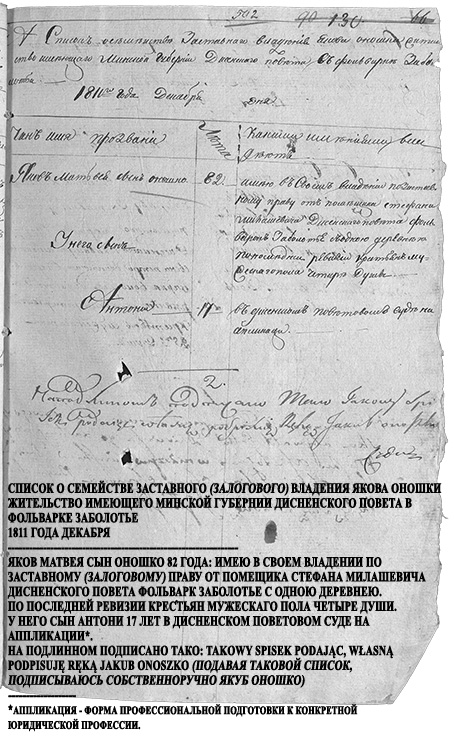 502 90 130 66
Списокъ о семействе Заставнаго владения Якова оношки жител
ство имеющаго Минской губернии Дисненского повета въ фольварке Забо
лотье
1811 года Декабря дня
Чинъ имя прозвание
Лета
Яковъ Матвея сынъ оношко 82
имею въ своемъ владении по застав
ному праву от помещика стефана
милашевича Дисненского повета фоль
варокъ Заболотье съ одною деревнею
по последней ревизии крестьянъ му
жескаго пола четыре души
У него сынъ
Антони 17
въ дисненскомъ поветовомъ суде на
аппликации
2.
СПИСОК О СЕМЕЙСТВЕ ЗАСТАВНОГО (ЗАЛОГОВОГО) ВЛАДЕНИЯ ЯКОВА ОНОШКИ
ЖИТЕЛЬСТВО ИМЕЮЩЕГО МИНСКОЙ ГУБЕРНИИ ДИСНЕНСКОГО ПОВЕТА В
ФОЛЬВАРКЕ ЗАБОЛОТЬЕ
1811 ГОДА ДЕКАБРЯ
ЯКОВ МАТВЕЯ СЫН ОНОШКО 82 ГОДА: ИМЕЮ В СВОЕМ ВЛАДЕНИИ ПО
ЗАСТАВНОМУ (ЗАЛОГОВОМУ) ПРАВУ ОТ ПОМЕЩИКА СТЕФАНА МИЛАШЕВИЧА
ДИСНЕНСКОГО ПОВЕТА ФОЛЬВАРК ЗАБОЛОТЬЕ С ОДНОЮ ДЕРЕВНЕЮ.
ПО ПОСЛЕДНЕЙ РЕВИЗИИ КРЕСТЬЯН МУЖЕСКАГО ПОЛА ЧЕТЫРЕ ДУШИ.
У НЕГО СЫН АНТОНИ 17 ЛЕТ В ДИСНЕНСКОМ ПОВЕТОВОМ СУДЕ НА
АППЛИКАЦИИ*.
НА ПОДЛИННОМ ПОДПИСАНО ТАКО: TAKOWY SPISEK PODAJĄC, WŁASNĄ
PODPISUJĘ RĘKĄ JAKUB ONOSZKO (ПОДАВАЯ ТАКОВОЙ СПИСОК,
ПОДПИСЫВАЮСЬ СОБСТВЕННОРУЧНО ЯКУБ ОНОШКО)
*АППЛИКАЦИЯ - ФОРМА ПРОФЕССИОНАЛЬНОЙ ПОДГОТОВКИ К КОНКРЕТНОЙ
ЮРИДИЧЕСКОЙ ПРОФЕССИИ.